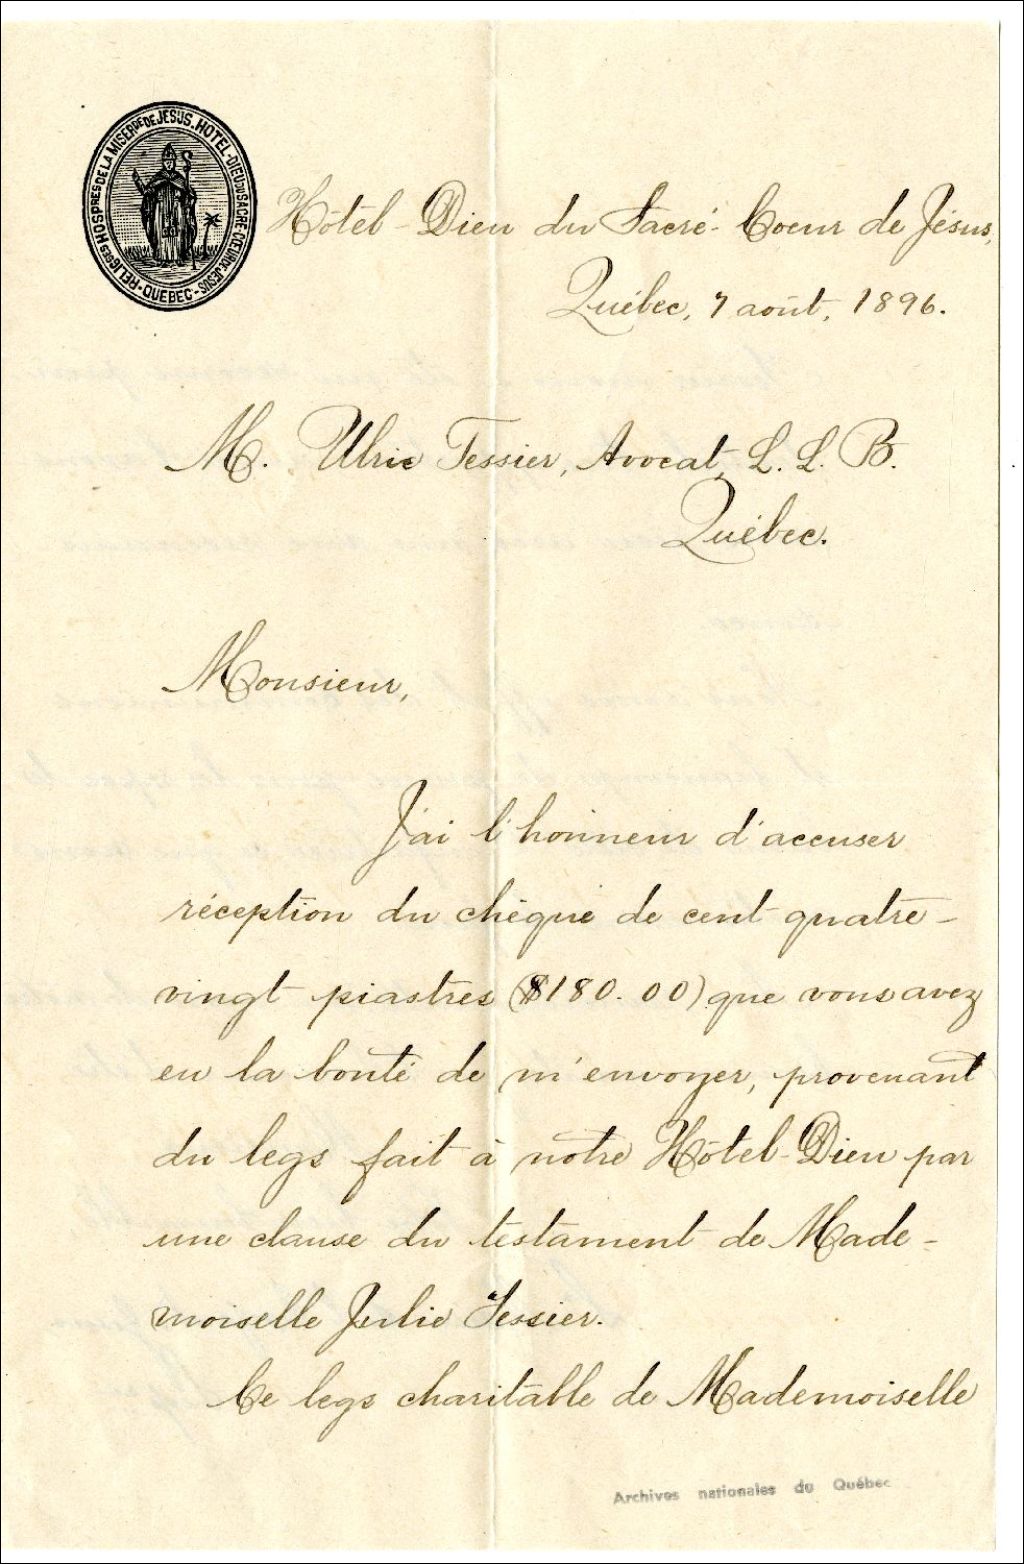 RELIGSES HOSPRES DE LA MISERDE DE JESUS. HOTEL-DIEU DU SACRE CŒUR DE JESUS - QUEBEC -
Hôtel-Dieu du Sacré-Coeur de Jésus,
Québec, 7 août, 1896.
M. Ulric Tessier, Avocat, L. L. B.
Québec.
Monsieur,
J'ai l'honneur d'accuser
réception du chèque de cent quatre-
vingt piastres ($180.00) que vous avez
eu la bonté de m'envoyer, provenant
du legs fait à notre Hôtel-Dieu par
une clause du testament de Made-
moiselle Julie Tessier.
Ce legs charitable de Mademoiselle
Archives nationales du Québec